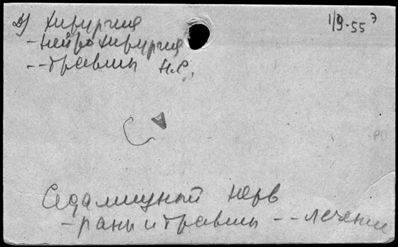 д) хирургия
1/9-55 г
-нейрохирургия
--травмы н.с.
Седалищный нерв
-раны и травмы --лечение